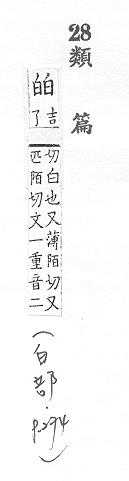 28 類篇
吉
了
切白也又薄陌切又
匹陌切文一重音二
(白部・p.294)